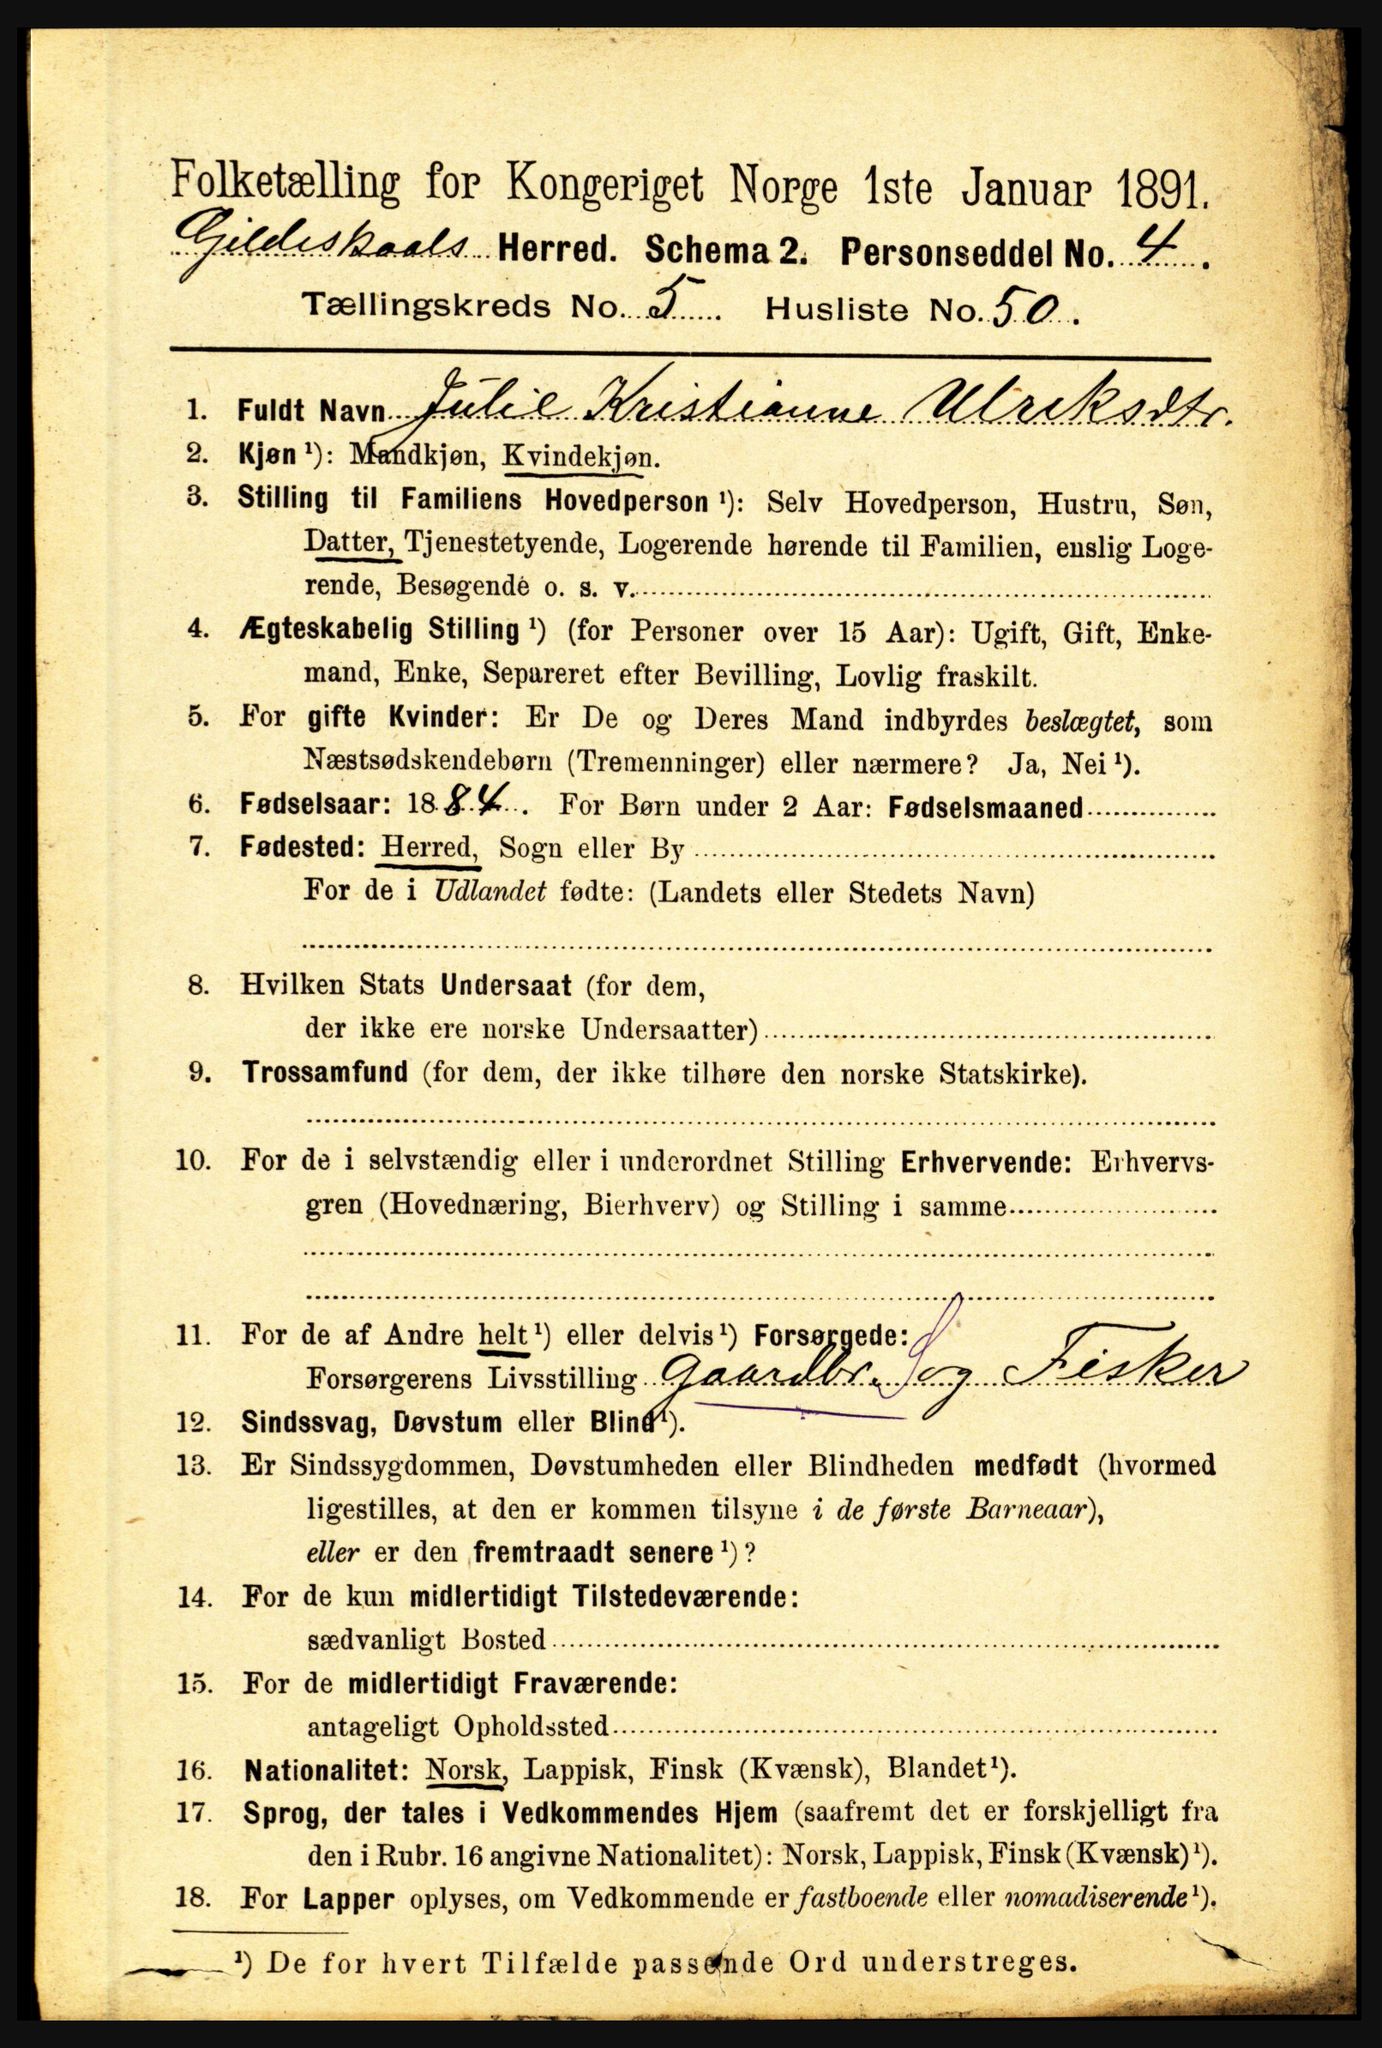 Folketælling for Kongeriget Norge 1ste Januar 1891.
Gildeskaals Herred. Schema 2. Personseddel No. 4.
Tællingskreds No. 5. Husliste No. 50.
1. Fuldt Navn Julie Kristianne Ulriksdtr.
2. Kjøn ¹): Mandkjøn, Kvindekjøn.
3. Stilling til Familiens Hovedperson ¹): Selv Hovedperson, Hustru, Søn,
Datter, Tjenestetyende, Logerende hørende til Familien, enslig Loge-
rende, Besøgende o. s. v.
4. Ægteskabelig Stilling ¹) (for Personer over 15 Aar): Ugift, Gift, Enke-
mand, Enke, Separeret efter Bevilling, Lovlig fraskilt.
5. For gifte Kvinder: Er De og Deres Mand indbyrdes beslægtet, som
Næstsødskendebørn (Tremenninger) eller nærmere? Ja, Nei ¹).
6. Fødselsaar: 1884. For Børn under 2 Aar: Fødselsmaaned
7. Fødested: Herred, Sogn eller By
For de i Udlandet fødte: (Landets eller Stedets Navn)
8. Hvilken Stats Undersaat (for dem,
der ikke ere norske Undersaatter)
9. Trossamfund (for dem, der ikke tilhøre den norske Statskirke).
10. For de i selvstændig eller i underordnet Stilling Erhvervende: Erhvervs-
gren (Hovednæring, Bierhverv) og Stilling i samme
11. For de af Andre helt ¹) eller delvis ¹) Forsørgede:
Forsørgerens Livsstilling Gaardbr. S og Fisker
12. Sindssvag, Døvstum eller Blind ¹).
13. Er Sindssygdommen, Døvstumheden eller Blindheden medfødt (hvormed
ligestilles, at den er kommen tilsyne i de første Barneaar),
eller er den fremtraadt senere ¹)?
14. For de kun midlertidigt Tilstedeværende:
sædvanligt Bosted
15. For de midlertidigt Fraværende:
antageligt Opholdssted
16. Nationalitet: Norsk, Lappisk, Finsk (Kvænsk), Blandet ¹).
17. Sprog, der tales i Vedkommendes Hjem (saafremt det er forskjelligt fra
den i Rubr. 16 angivne Nationalitet): Norsk, Lappisk, Finsk (Kvænsk) ¹).
18. For Lapper oplyses, om Vedkommende er fastboende eller nomadiserende ¹).
¹) De for hvert Tilfælde passende Ord understreges.